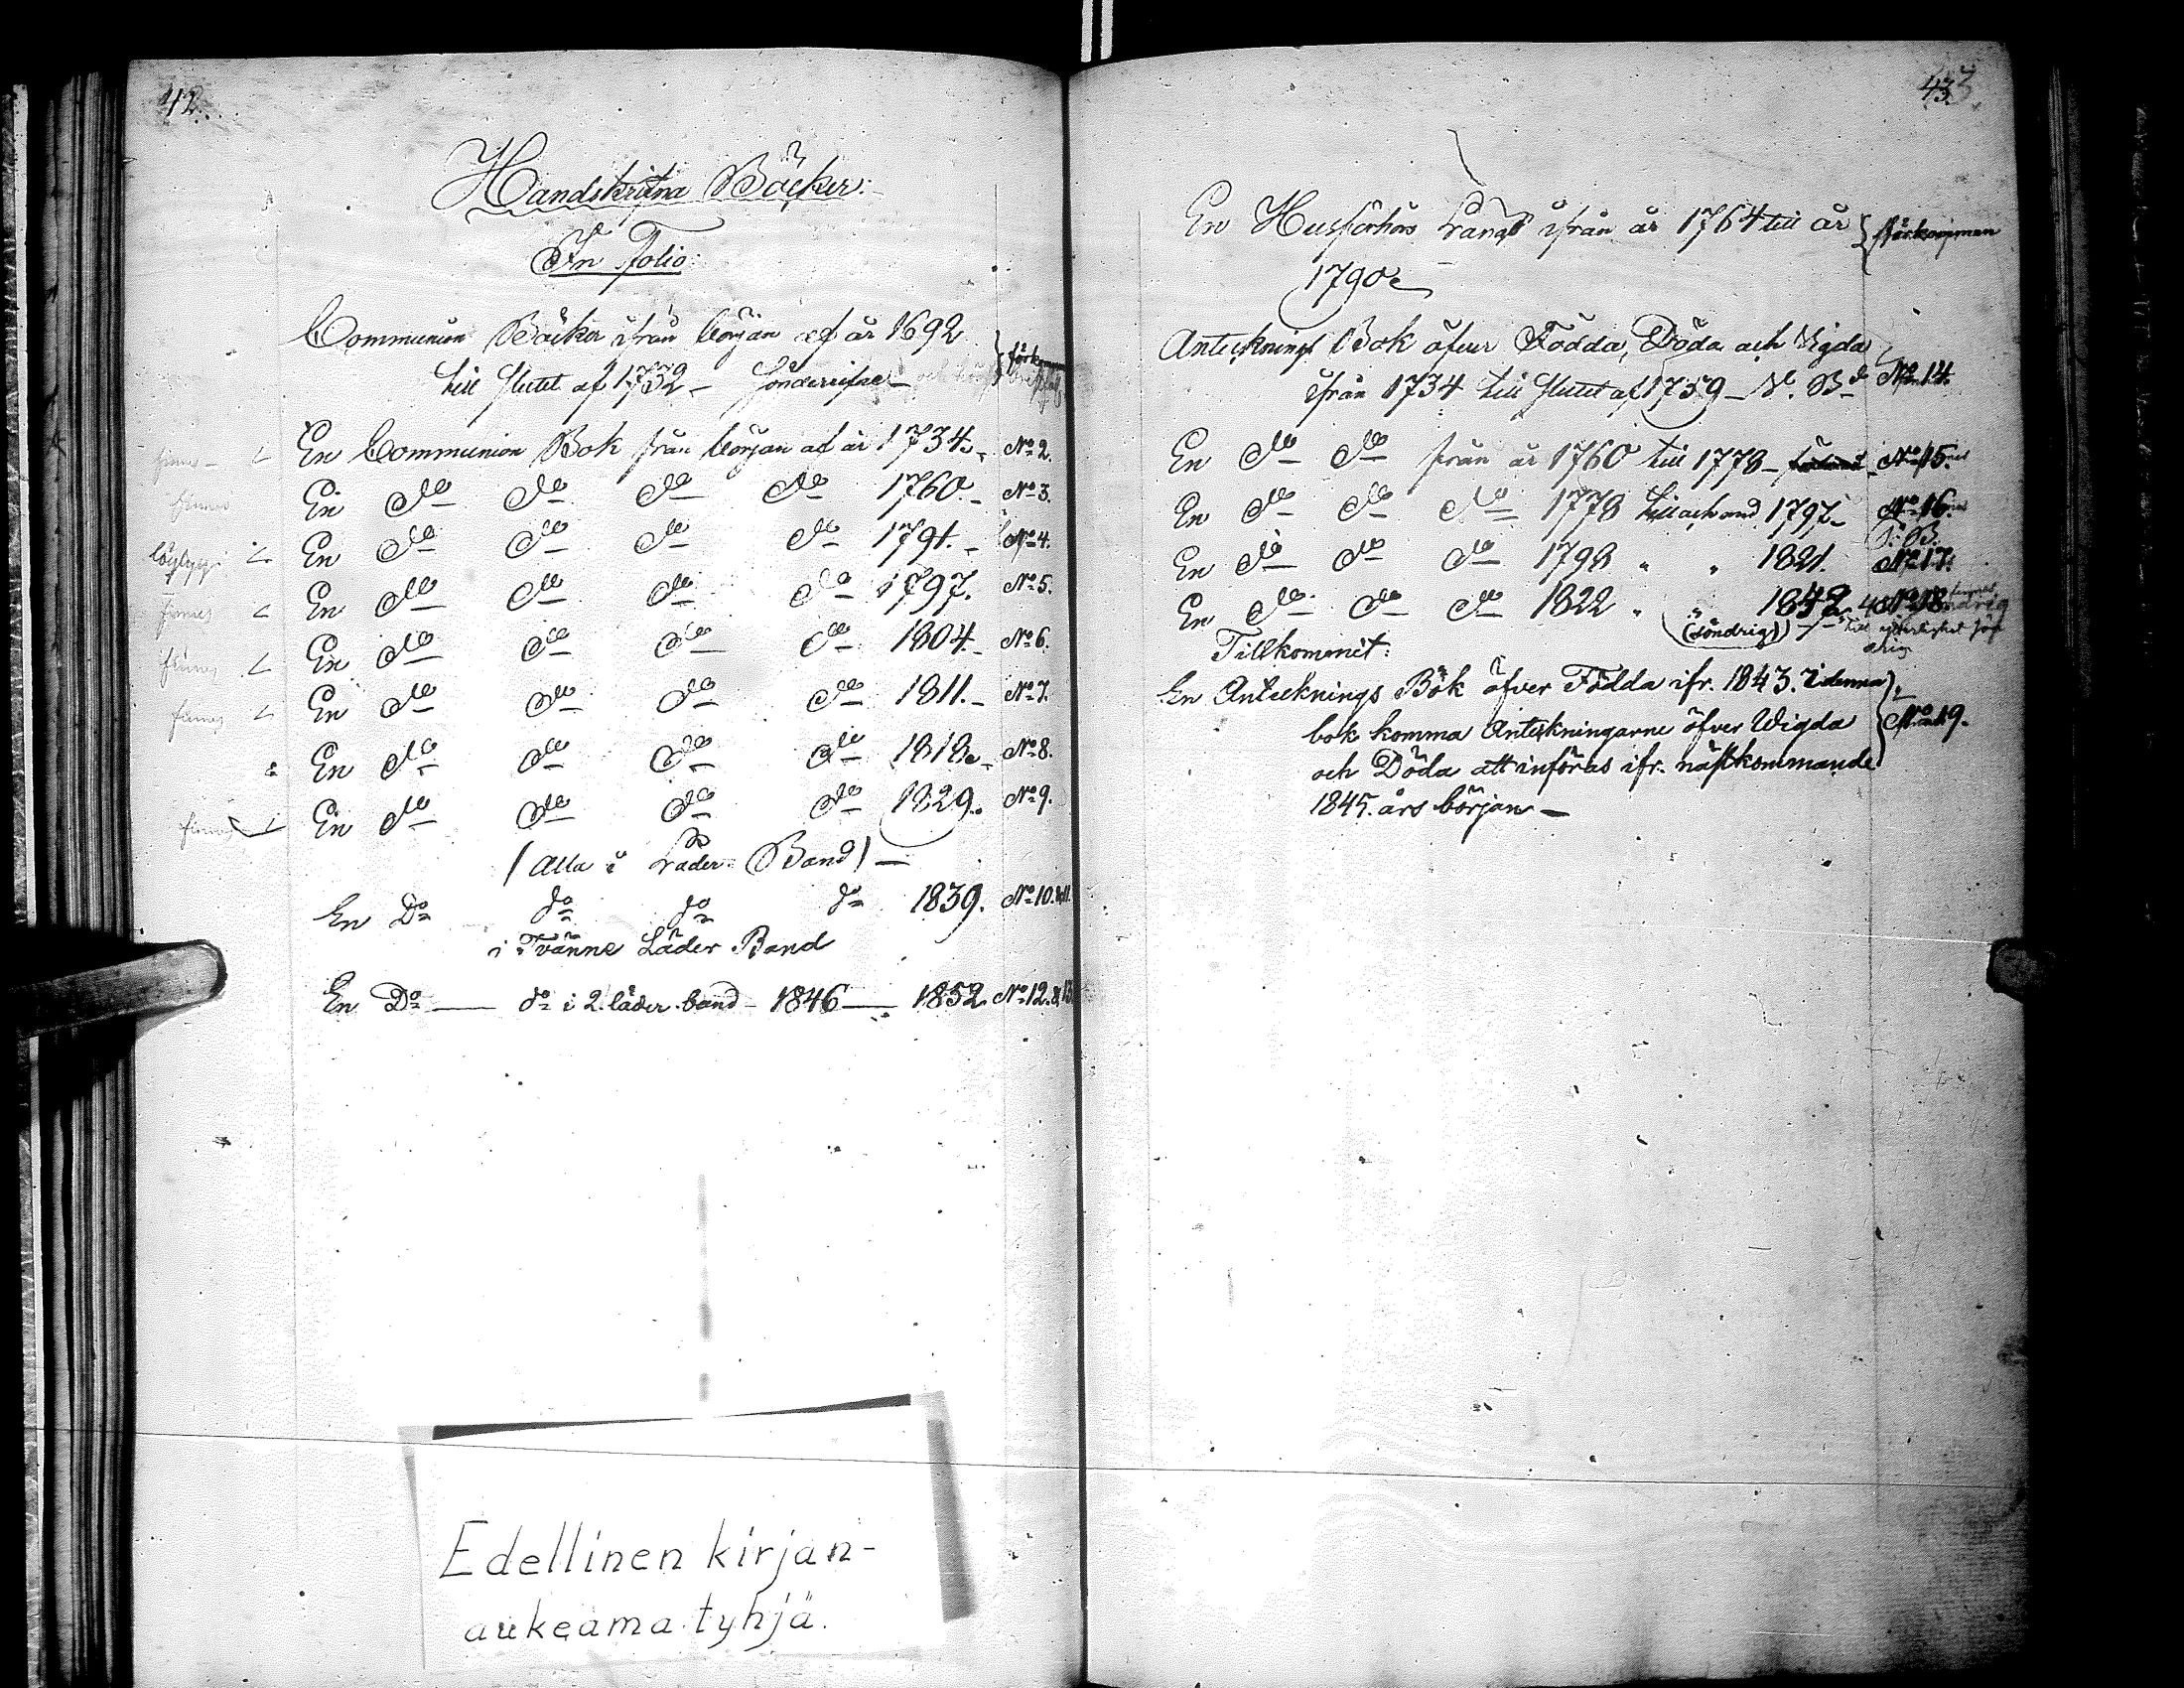 42.
Handskrifna Böcker:
In Folio:
Communion Böcker ifrån början af år 1692
till slutet af 1732 – Sönderrifne – förkommen
finnes – En Communion Bok från början af år 1734. – No 2.
finnes En do do do do 1760. – No 3.
löytyy En do do do do 1791. – No 4.
finnes En do do do do 1797. No 5.
finnes En do do do do 1804. – No 6.
finnes En do do do do 1811. – No 7.
En do do do do 1818. – No 8.
finnes En do do do do 1829. No 9.
(Alla i Läder Band) –
En Do do do do 1839. No 10. & 11.
i Tvänne Läder Band
En Do — do i 2 läder band – 1846 — 1852. No 12. & 13
Edellinen kirjan-
aukeama tyhjä.
43
En Husförhörs Längd ifrån år 1764 till år förkommen
1790
Antecknings Bok öfver Födda, Döda och Vigda
ifrån 1734 till slutet af 1759 – No 14.
En do do från år 1760 till 1778 – No 15.
En do do do 1778 till och med 1797 – No 16.
En do do do 1798 " " 1821. No 17.
En do do do 1822 " " 1842 No 18.
(söndrig)
Tillkommit:
En Antecknings Bok öfver Födda ifr. 1843. I denna
bok komma Anteckningarne öfver Wigda No 19.
och Döda att införas ifr. nästkommande
1845. års början –